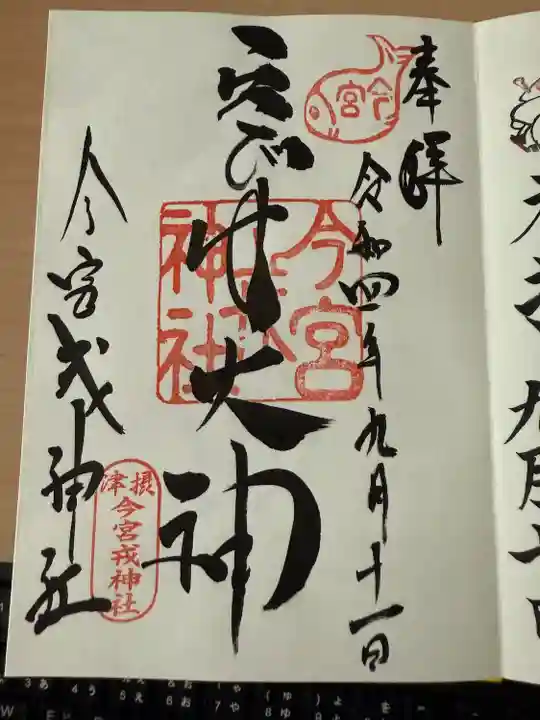 奉拝
令和四年九月十一日
今宮
大神
今宮戎神社
今宮戎神社
摂津
今宮戎神社
九月